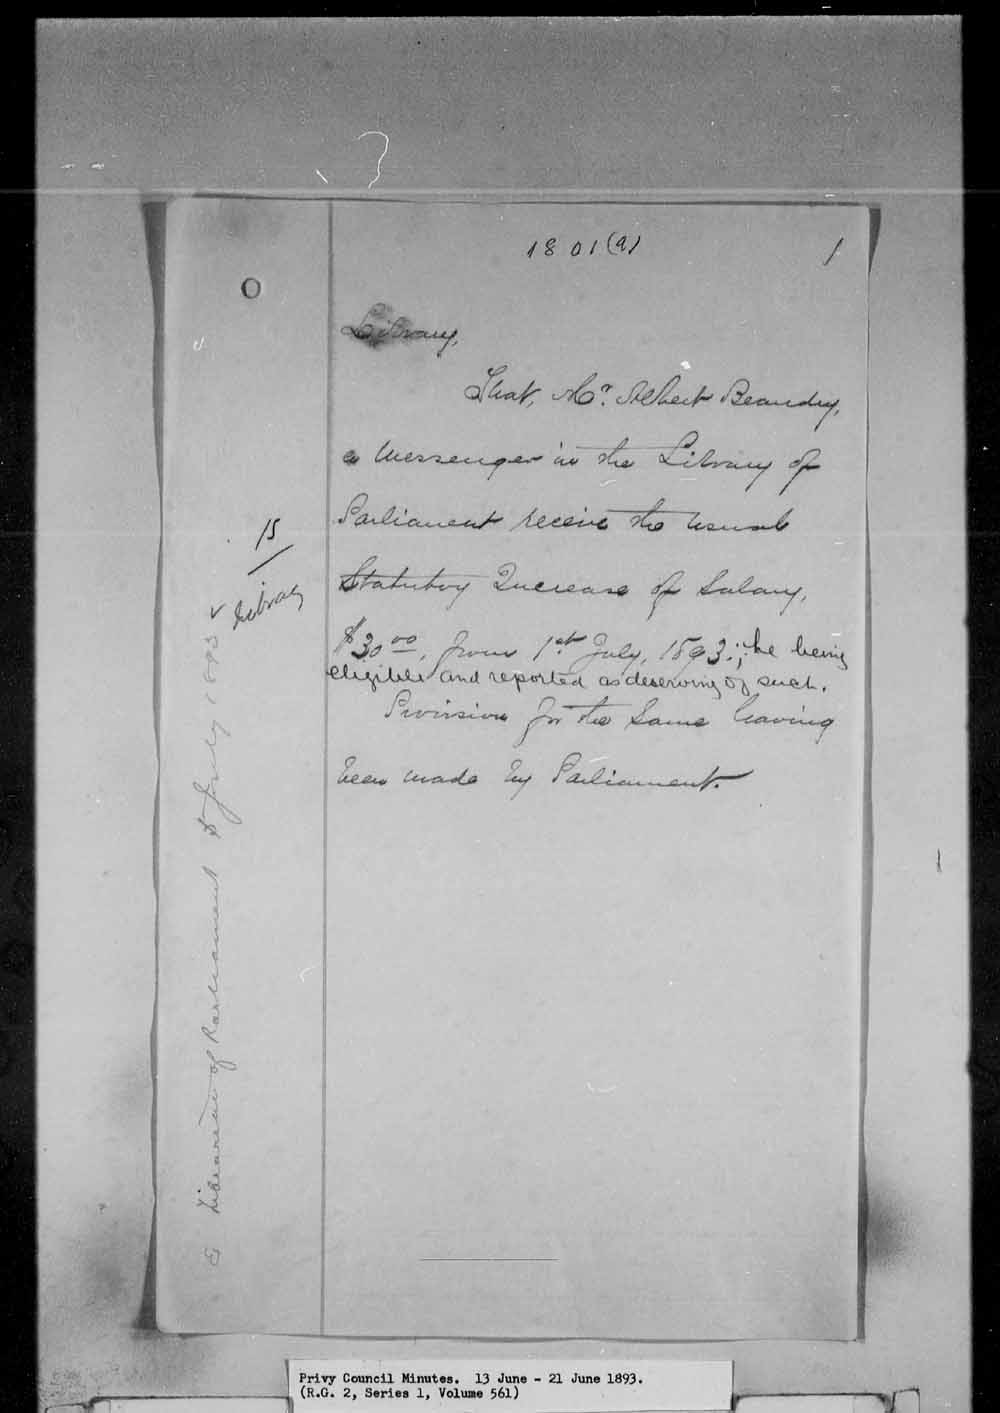 1801(a) 1
Library,
That, Mr. Albert Beaudry,
a Messenger in the Library of
Parliament receive the usual
Statutory Increase of Salary,
$30 00, from 1st July, 1893; he being
eligible and reported as deserving of such.
Provision for the same having
been made by Parliament.
15
Library
Librarian of Parliament July 1893
Privy Council Minutes. 13 June - 21 June 1893.
(R.G. 2, Series 1, Volume 561)